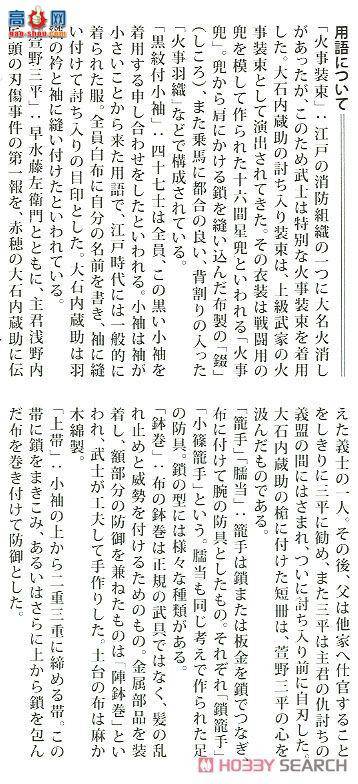 用語について
「火事装束」：江戸の消防組織の一つに大名火消し
があったが、このため武士は特別な火事装束を着用
した。大石内蔵助の討ち入り装束は、上級武家の火
事装束として演出されてきた。その衣装は戦闘用の
兜を模して作られた十六間星兜といわれる「火事
兜」。兜から肩にかける鎖を縫い込んだ布製の「錣」
(しころ)、また乗馬に都合の良い、背割りの入った
「火事羽織」などで構成されている。
「黒紋付小袖」：四十七士は全員、この黒い小袖を
着用する申し合わせをしたといわれる。小袖は袖が
小さいことから来た用語で、江戸時代には一般的に
着られた服。全員白布に自分の名前を書き、袖に縫
い付けて討ち入りの目印とした。大石内蔵助は羽
の衿と袖に縫い付けたといわれている。
萱野三平」：早水藤左衛門とともに、主君浅野内
頭の刃傷事件の第一報を、赤穂の大石内蔵助に伝
えた義士の一人。その後、父は他家へ仕官すること
をしきりに三平に勧め、また三平は主君の仇討ちの
義盟の間にはさまれ、ついに討ち入り前に自刃した。
大石内蔵助の槍に付けた短冊は、萱野三平の心を
汲んだものである。
「籠手」「臑当」：籠手は鎖または板金を鎖でつなぎ、
布に付けて腕の防具としたもの。それぞれ「鎖籠手」
「小篠籠手」という。臑当も同じ考えで作られた足
の防具。鎖の型には様々な種類がある。
「鉢巻」：布の鉢巻は正規の武具ではなく、髪の乱
れ止めと威勢を付けるためのもの。金属部品を装
着し、額部分の防御を兼ねたものは「陣鉢巻」とい
われ、武士が工夫して手作りした。土台の布は麻か
木綿製。
「上帯」：小袖の上から二重三重に締める帯。この
帯に鎖をまきこみ、あるいはさらに上から鎖を包ん
だ布を巻き付けて防御とした。
高达网
gao-da.com
HOBBY SEARCH